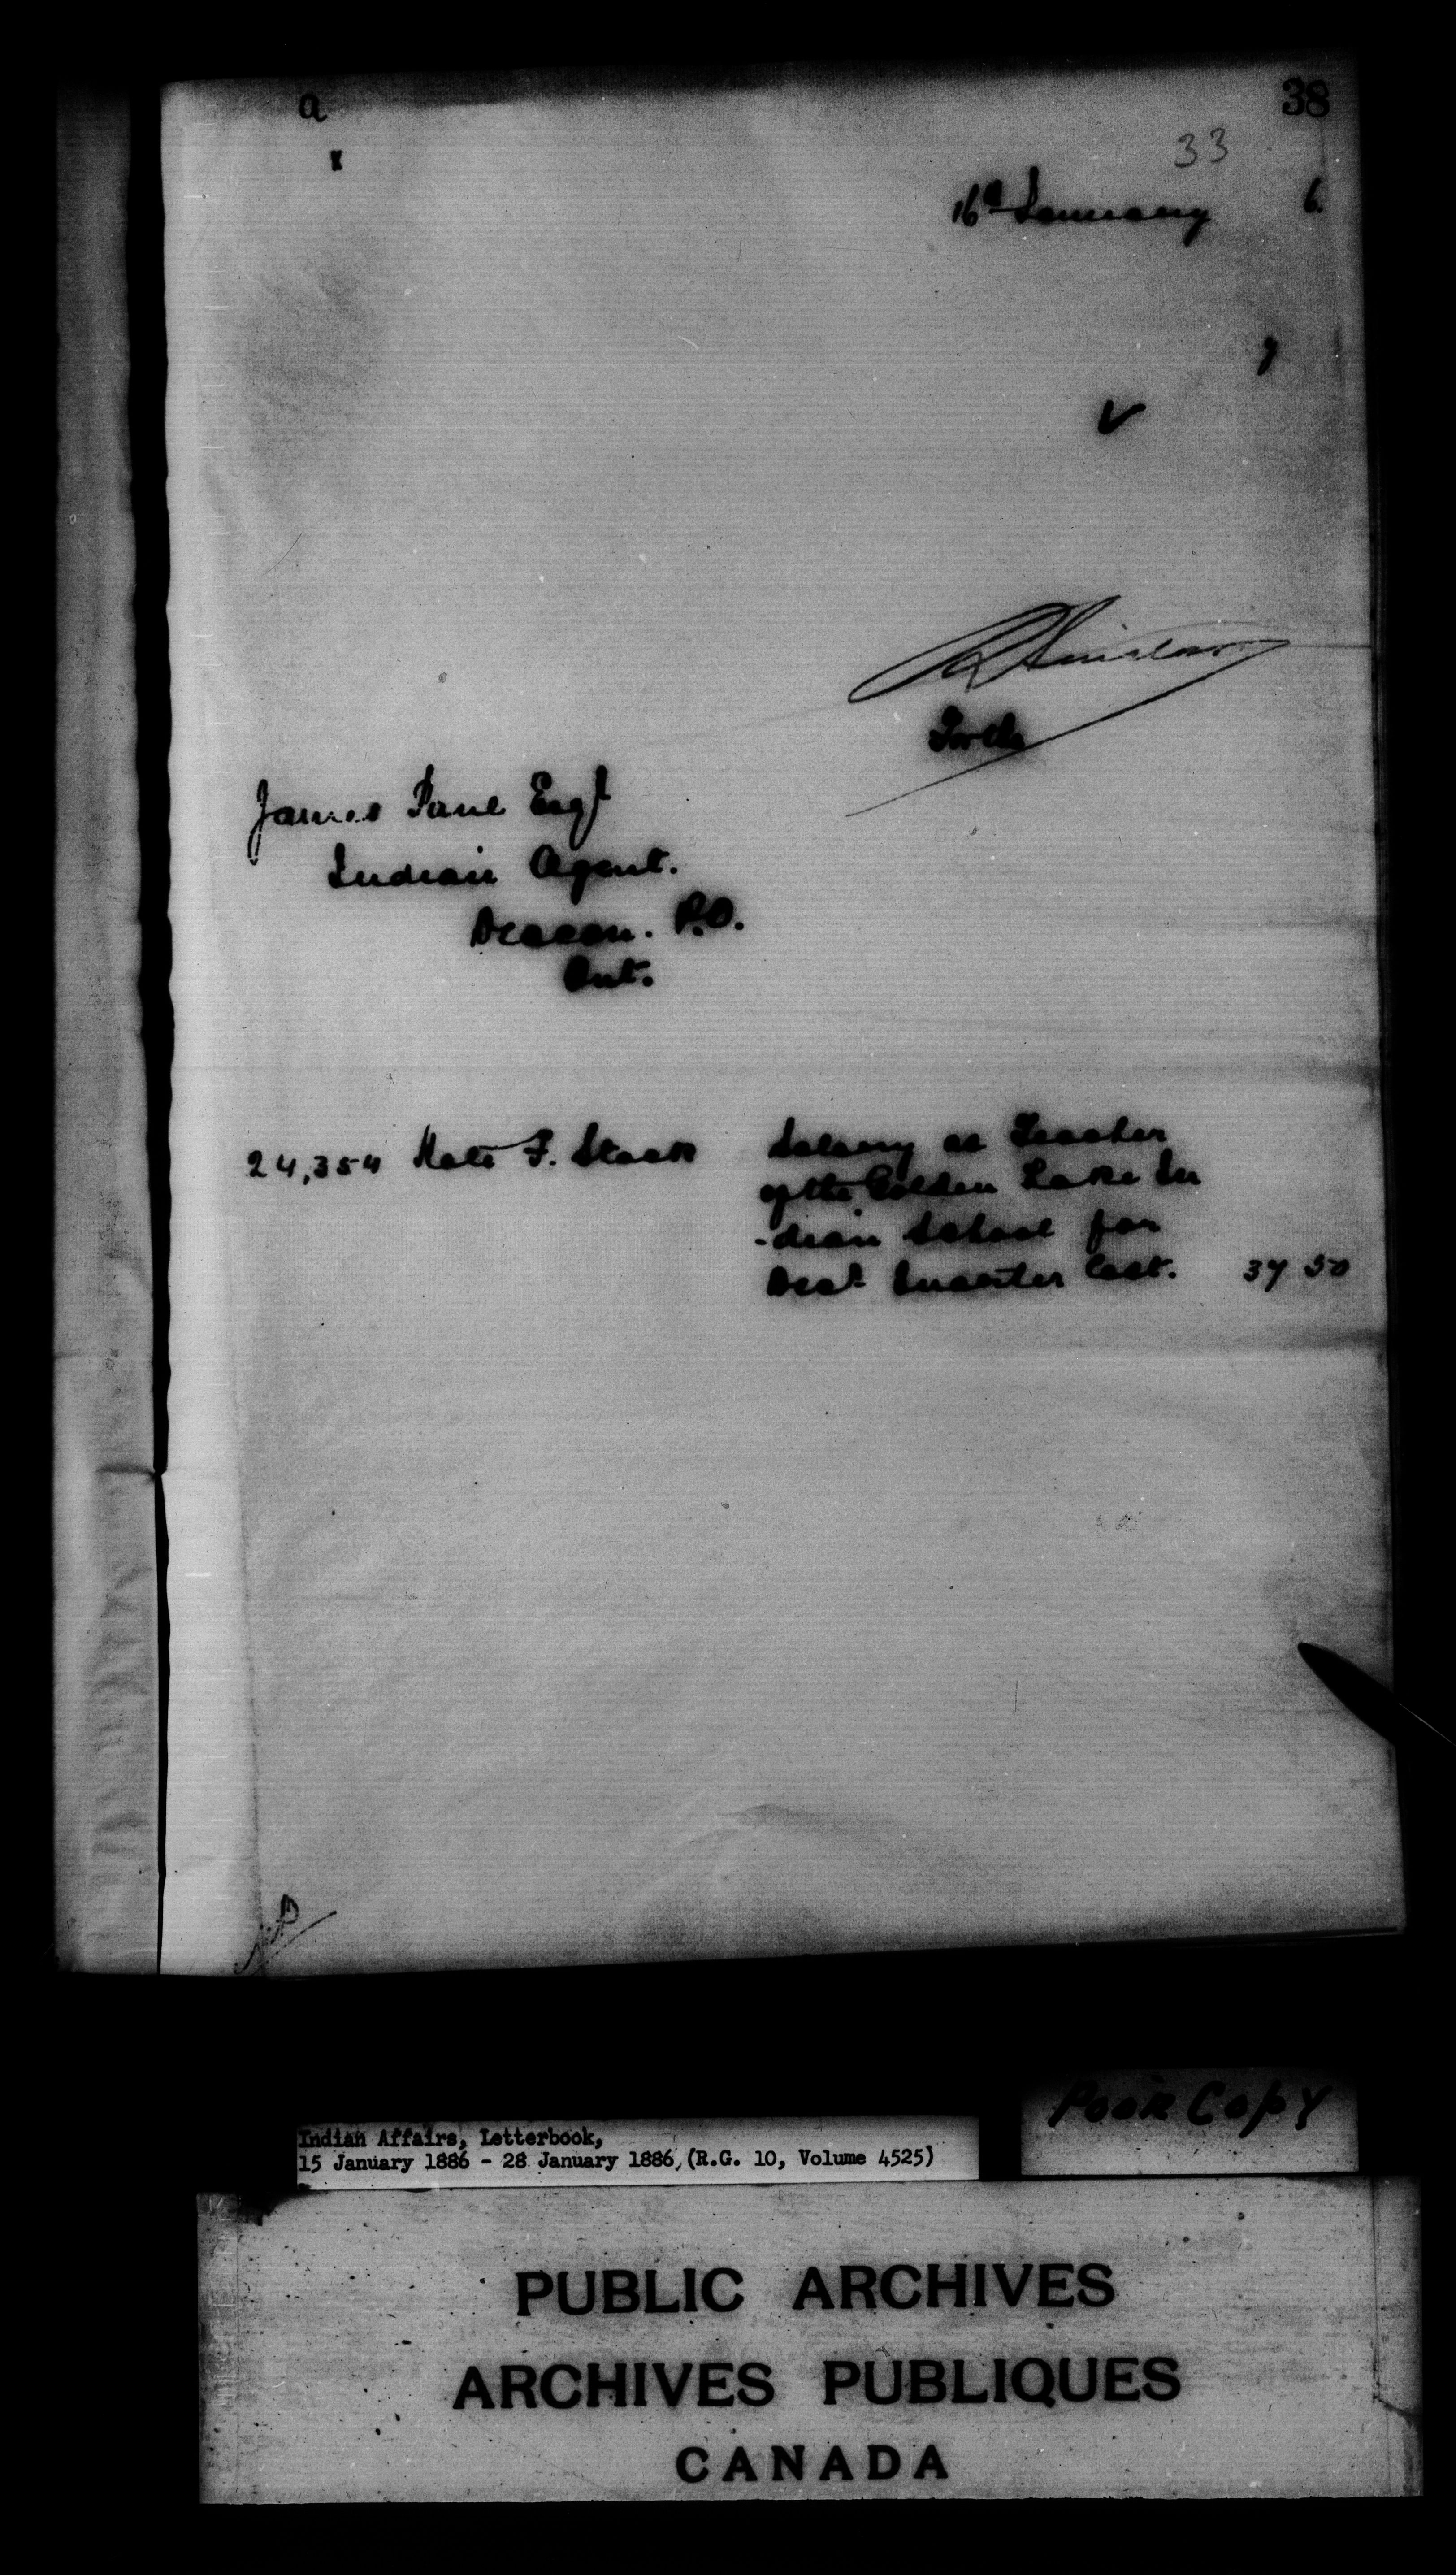 a
38
33
16th January 6.
For the
James Paul Esqr
Indian Agent.
Deacon. P.O.
Ont.
24,354 Kate F. Stack Salary as Teacher
of the Golden Lake In
-dian School for
Decr Quarter last. 37 50
Poor Copy
Indian Affairs, Letterbook,
15 January 1886 - 28 January 1886, (R.G. 10, Volume 4525)
PUBLIC ARCHIVES
ARCHIVES PUBLIQUES
CANADA